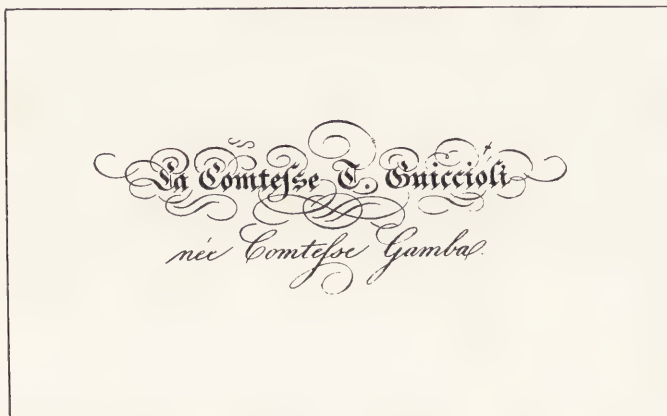 La Comteſse T. Guiccioli
née Comteſse Gamba.